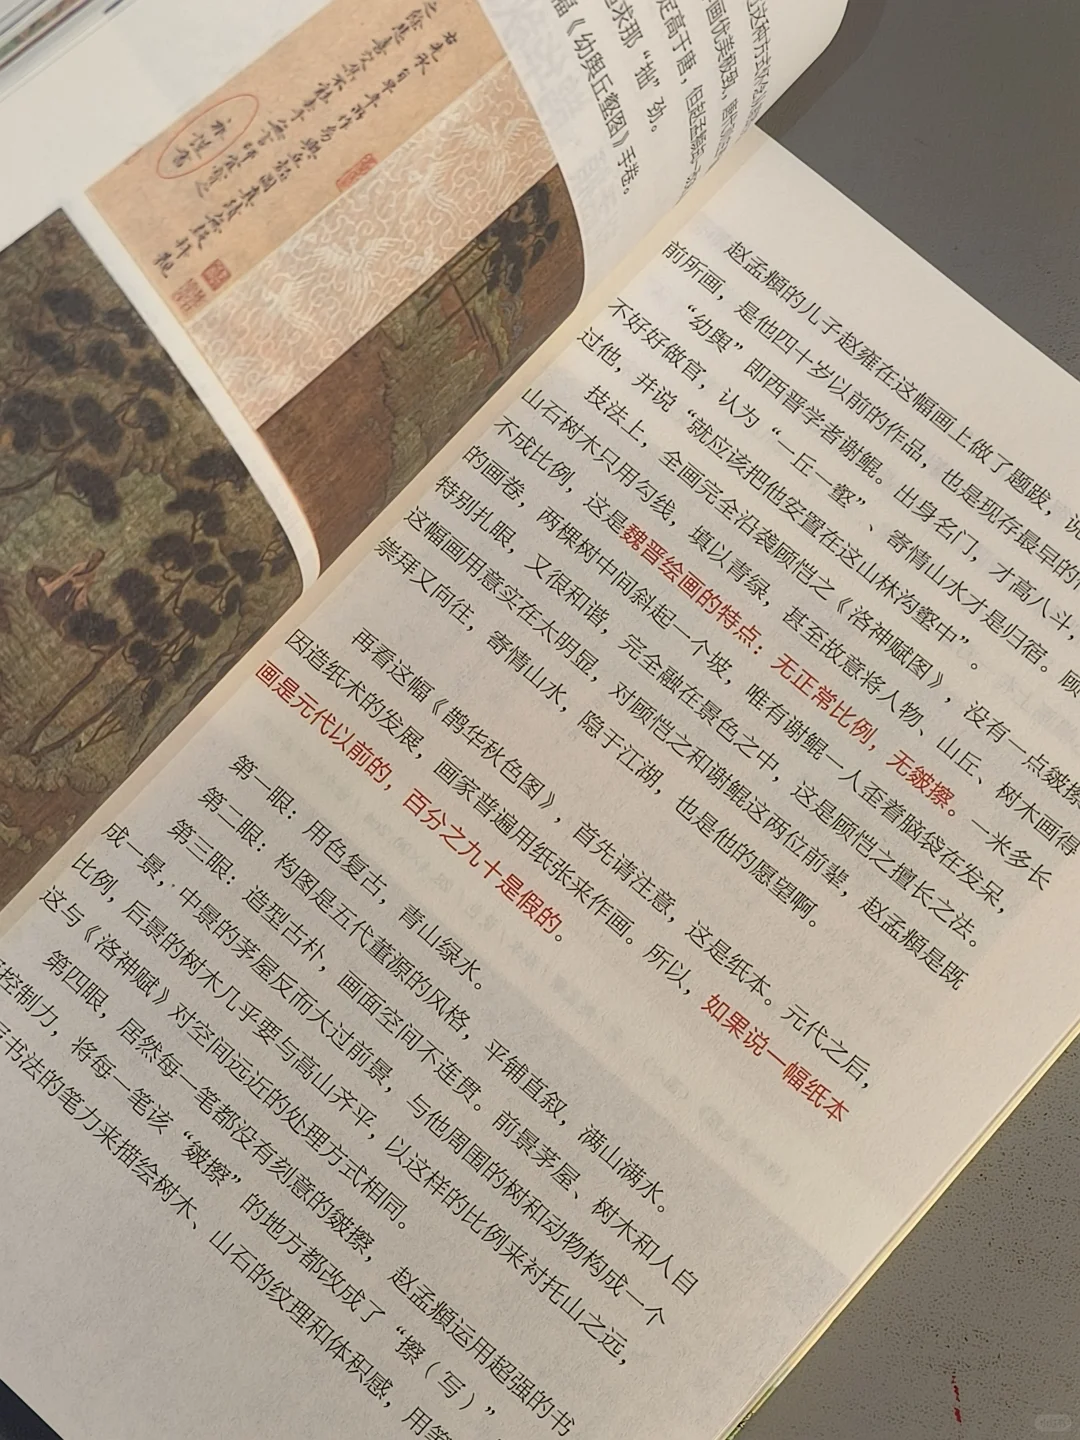 这种方式
福《幼舆丘壑图》手卷。
求那“拙”劲。
定高于唐,但
画优美极致,
右先承旨早年所作幼輿丘壑圖真蹟無疑拜觀
之餘悲喜交集不能去手無言師宜寶之
雍書
赵孟頫的儿子赵雍在这幅画上做了题跋,说
前所画,是他四十岁以前的作品,也是现存最早的作
“幼舆”即西晋学者谢鲲。出身名门,才高八斗,
不好好做官,认为“一丘一壑”、寄情山水才是归宿。顾
过他,并说“就应该把他安置在这山林沟壑中”。
技法上,全画完全沿袭顾恺之《洛神赋图》,没有一点皴擦
山石树木只用勾线,填以青绿,甚至故意将人物、山丘、树木画得
不成比例,这是魏晋绘画的特点:无正常比例,无皴擦。一米多长
的画卷,两棵树中间斜起一个坡,唯有谢鲲一人歪着脑袋在发呆,
特别扎眼,又很和谐,完全融在景色之中,这是顾恺之擅长之法。
这幅画用意实在太明显,对顾恺之和谢鲲这两位前辈,赵孟頫是既
崇拜又向往,寄情山水,隐于江湖,也是他的愿望啊。
再看这幅《鹊华秋色图》,首先请注意,这是纸本。元代之后,
因造纸术的发展,画家普遍用纸张来作画。所以,如果说一幅纸本
画是元代以前的,百分之九十是假的。
第一眼:用色复古,青山绿水。
第二眼:构图是五代董源的风格,平铺直叙,满山满水。
第三眼:造型古朴,画面空间不连贯。前景茅屋、树木和人自
成一景,中景的茅屋反而大过前景,与他周围的树和动物构成一个
比例,后景的树木几乎要与高山齐平,以这样的比例来衬托山之远,
这与《洛神赋》对空间远近的处理方式相同。
第四眼,居然每一笔都没有刻意的皴擦,赵孟頫运用超强的书
控制力,将每一笔该“皴擦”的地方都改成了“擦(写)”
书法的笔力来描绘树木、山石的纹理和体积感,用笔